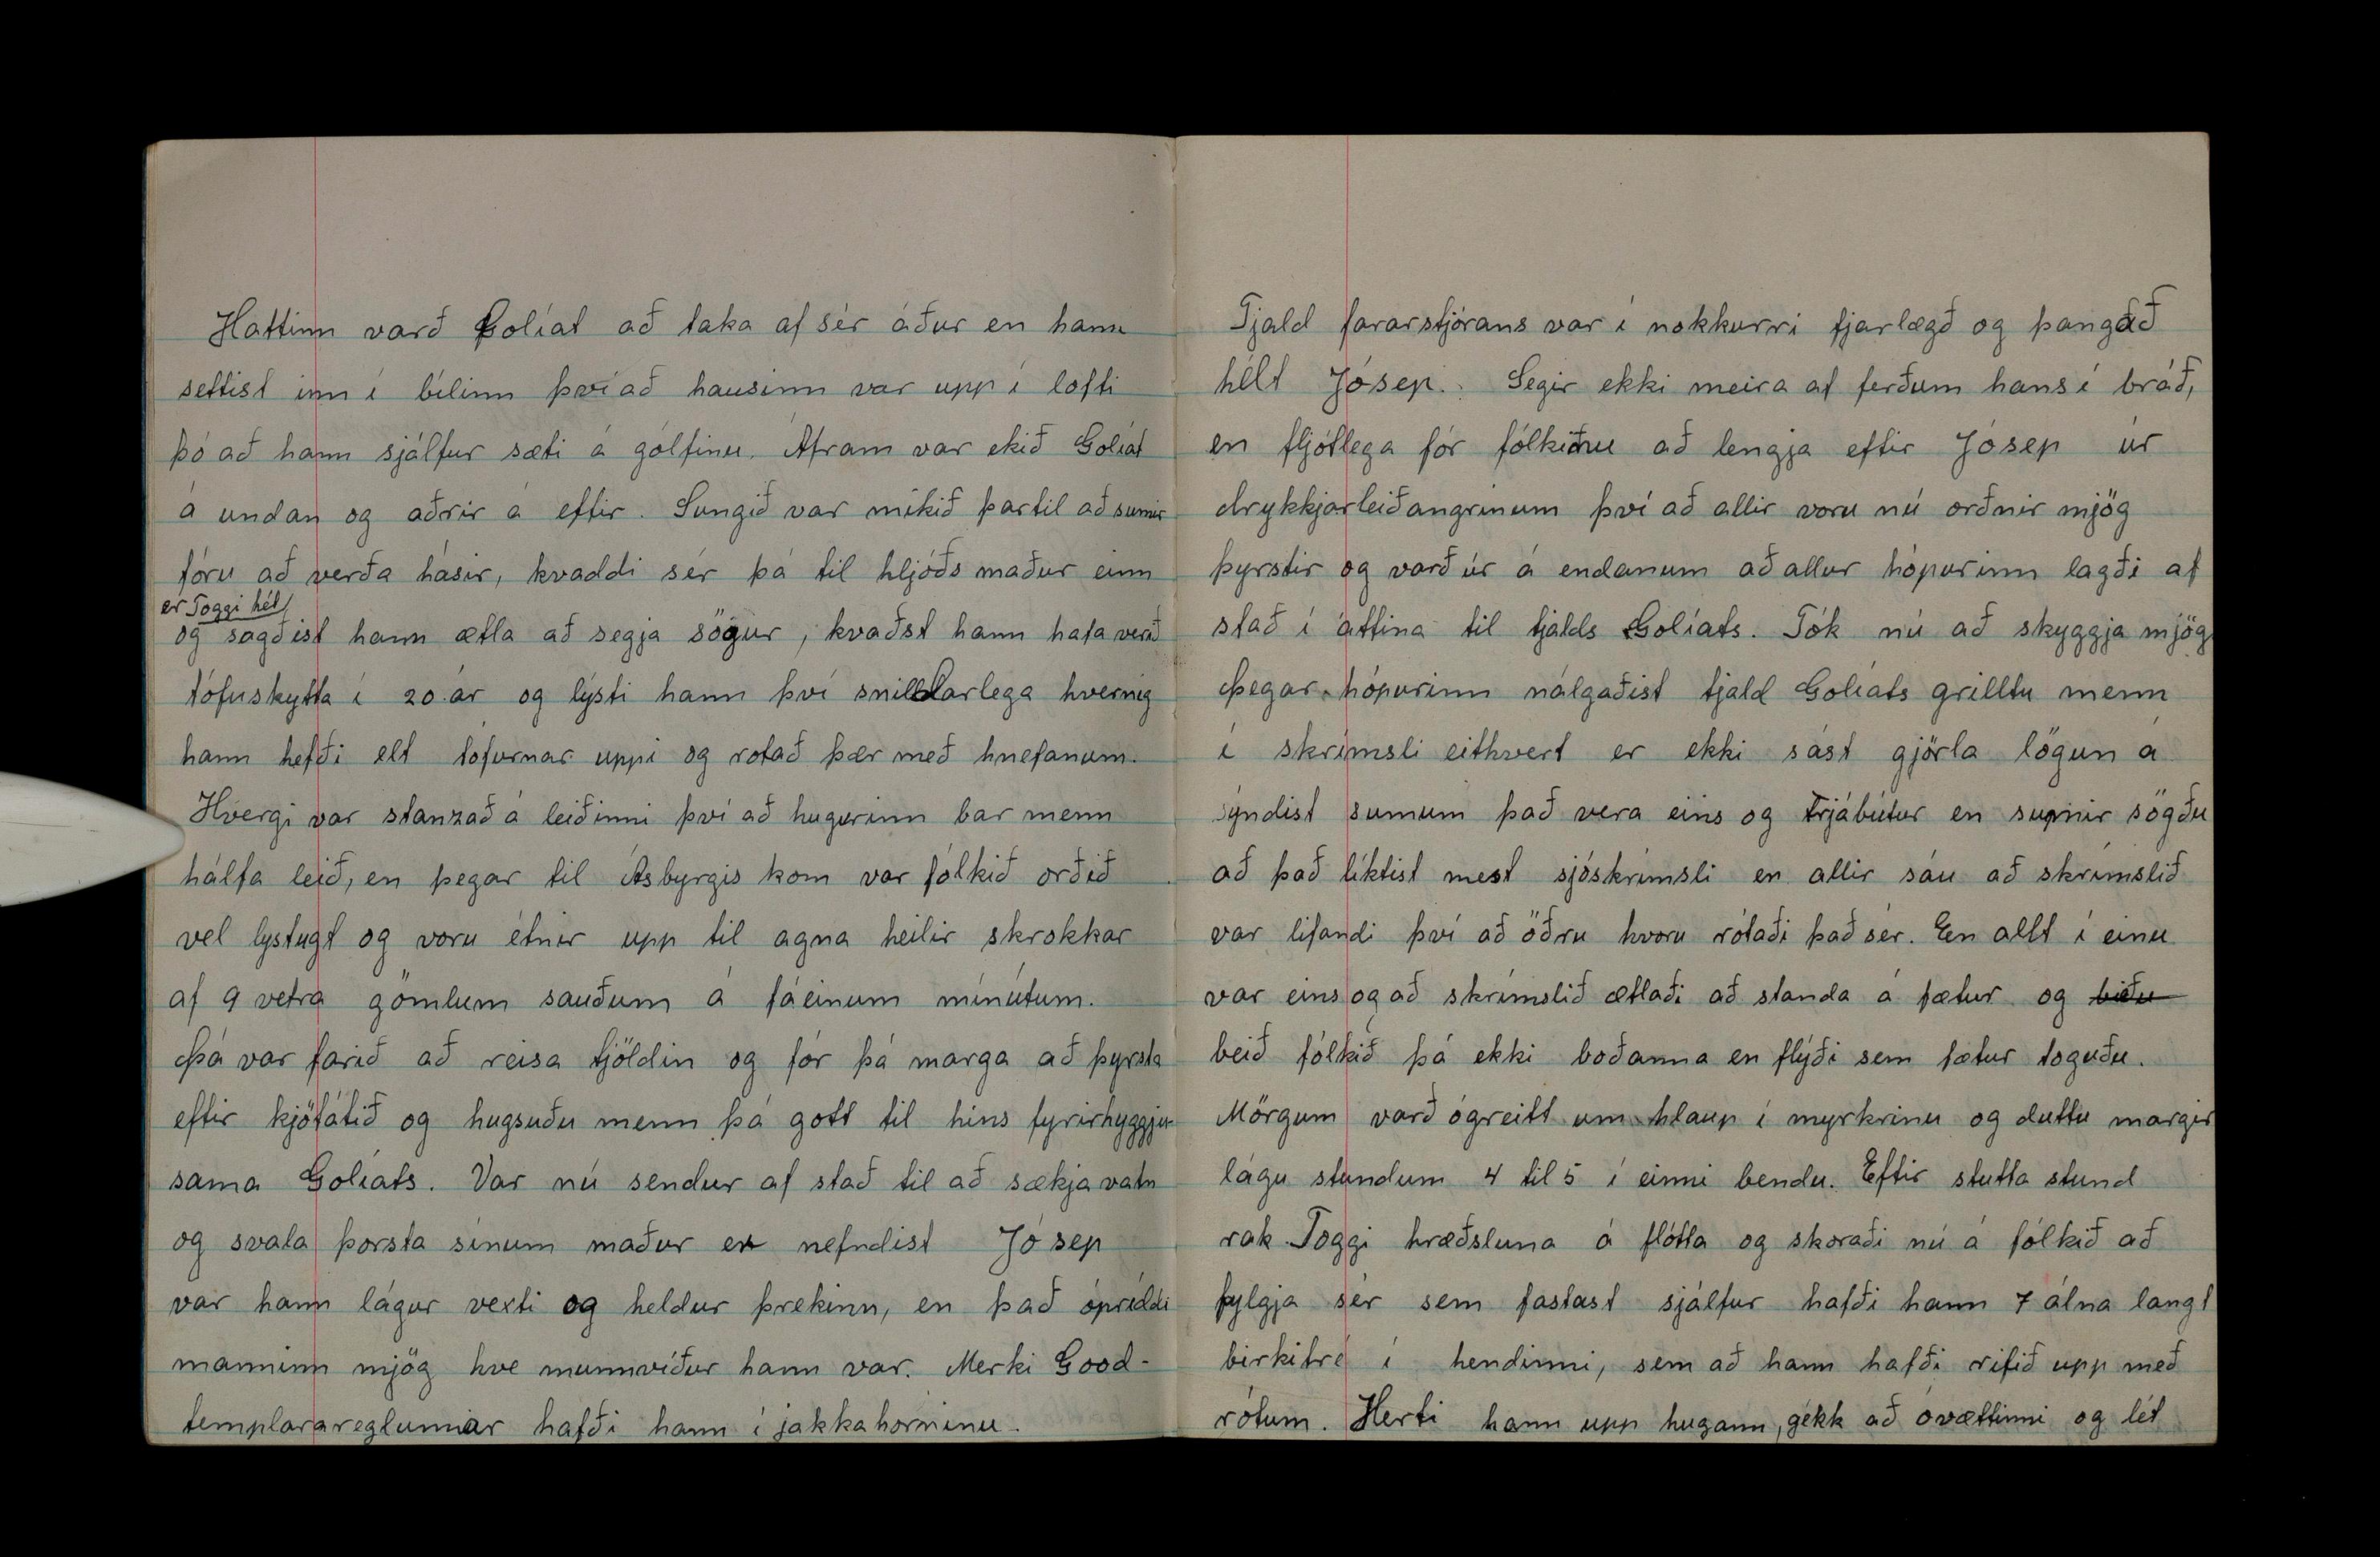 Hattinn varð Golíat að taka af sér áður en hann
settist inn í bílinn því að hausinn var upp í lofti
þó að hann sjálfur sæti á gólfinu. Áfram var ekið Golíat
á undan og aðrir á eftir. Sungið var mikið þartil að sumir
fóru að verða hásir, kvaddi sér þá til hljóðs maður einn
er Toggi hét/
og sagðist hann ætla að segja sögur, kvaðst hann hafa verið
tófuskytta í 20 ár og lýsti hann því snilldarlega hvernig
hann hefði elt tófurnar uppi og rotað þær með hnefanum.
Hvergi var stanzað á leiðinni því að hugurinn bar menn
hálfa leið, en þegar til Ásbyrgis kom var fólkið orðið
vel lystugt og voru étnir upp til agna heilir skrokkar
af 9 vetra gömlum sauðum á fáeinum mínútum.
Þá var farið að reisa tjöldin og fór þá marga að þyrsta
eftir kjötátið og hugsuðu menn þá gott til hins fyrirhyggju-
sama Golíats. Var nú sendur af stað til að sækja vatn
og svala þorsta sínum maður er nefndist Jósep
var hann lágur vexti og heldur þrekinn, en það óprýddi
manninn mjög hve munnvíður hann var. Merki Good-
templarareglunnar hafði hann í jakkahorninu.
Tjald fararstjórans var í nokkurri fjarlægð og þangað
hélt Jósep. Segir ekki meira af ferðum hans í bráð,
en fljótlega fór fólkinu að lengja eftir Jósep úr
drykkjarleiðangrinum því að allir voru nú orðnir mjög
þyrstir og varð úr á endanum að allur hópurinn lagði af
stað í áttina til tjalds Golíats. Tók nú að skyggja mjög
Þegar hópurinn nálgaðist tjald Golíats grilltu menn
í skrímsli eithvert er ekki sást gjörla lögun á
sýndist sumum það vera eins og trjábútur en sumir sögðu
að það líktist mest sjóskrímsli en allir sáu að skrímslið
var lifandi því að öðru hvoru rótaði það sér. En allt í einu
var eins og að skrímslið ætlaði að standa á fætur og biðu
beið fólkið þá ekki boðanna en flýði sem fætur toguðu.
Mörgum varð ógreitt um hlaup í myrkrinu og duttu margir
lágu stundum 4 til 5 í einni bendu. Eftir stutta stund
rak Toggi hræðsluna á flótta og skoraði nú á fólkið að
fylgja sér sem fastast sjálfur hafði hann 7 álna langt
birkitré í hendinni, sem að hann hafði rifið upp með
rótum. Herti hann upp hugann, gékk að óvættinni og lét